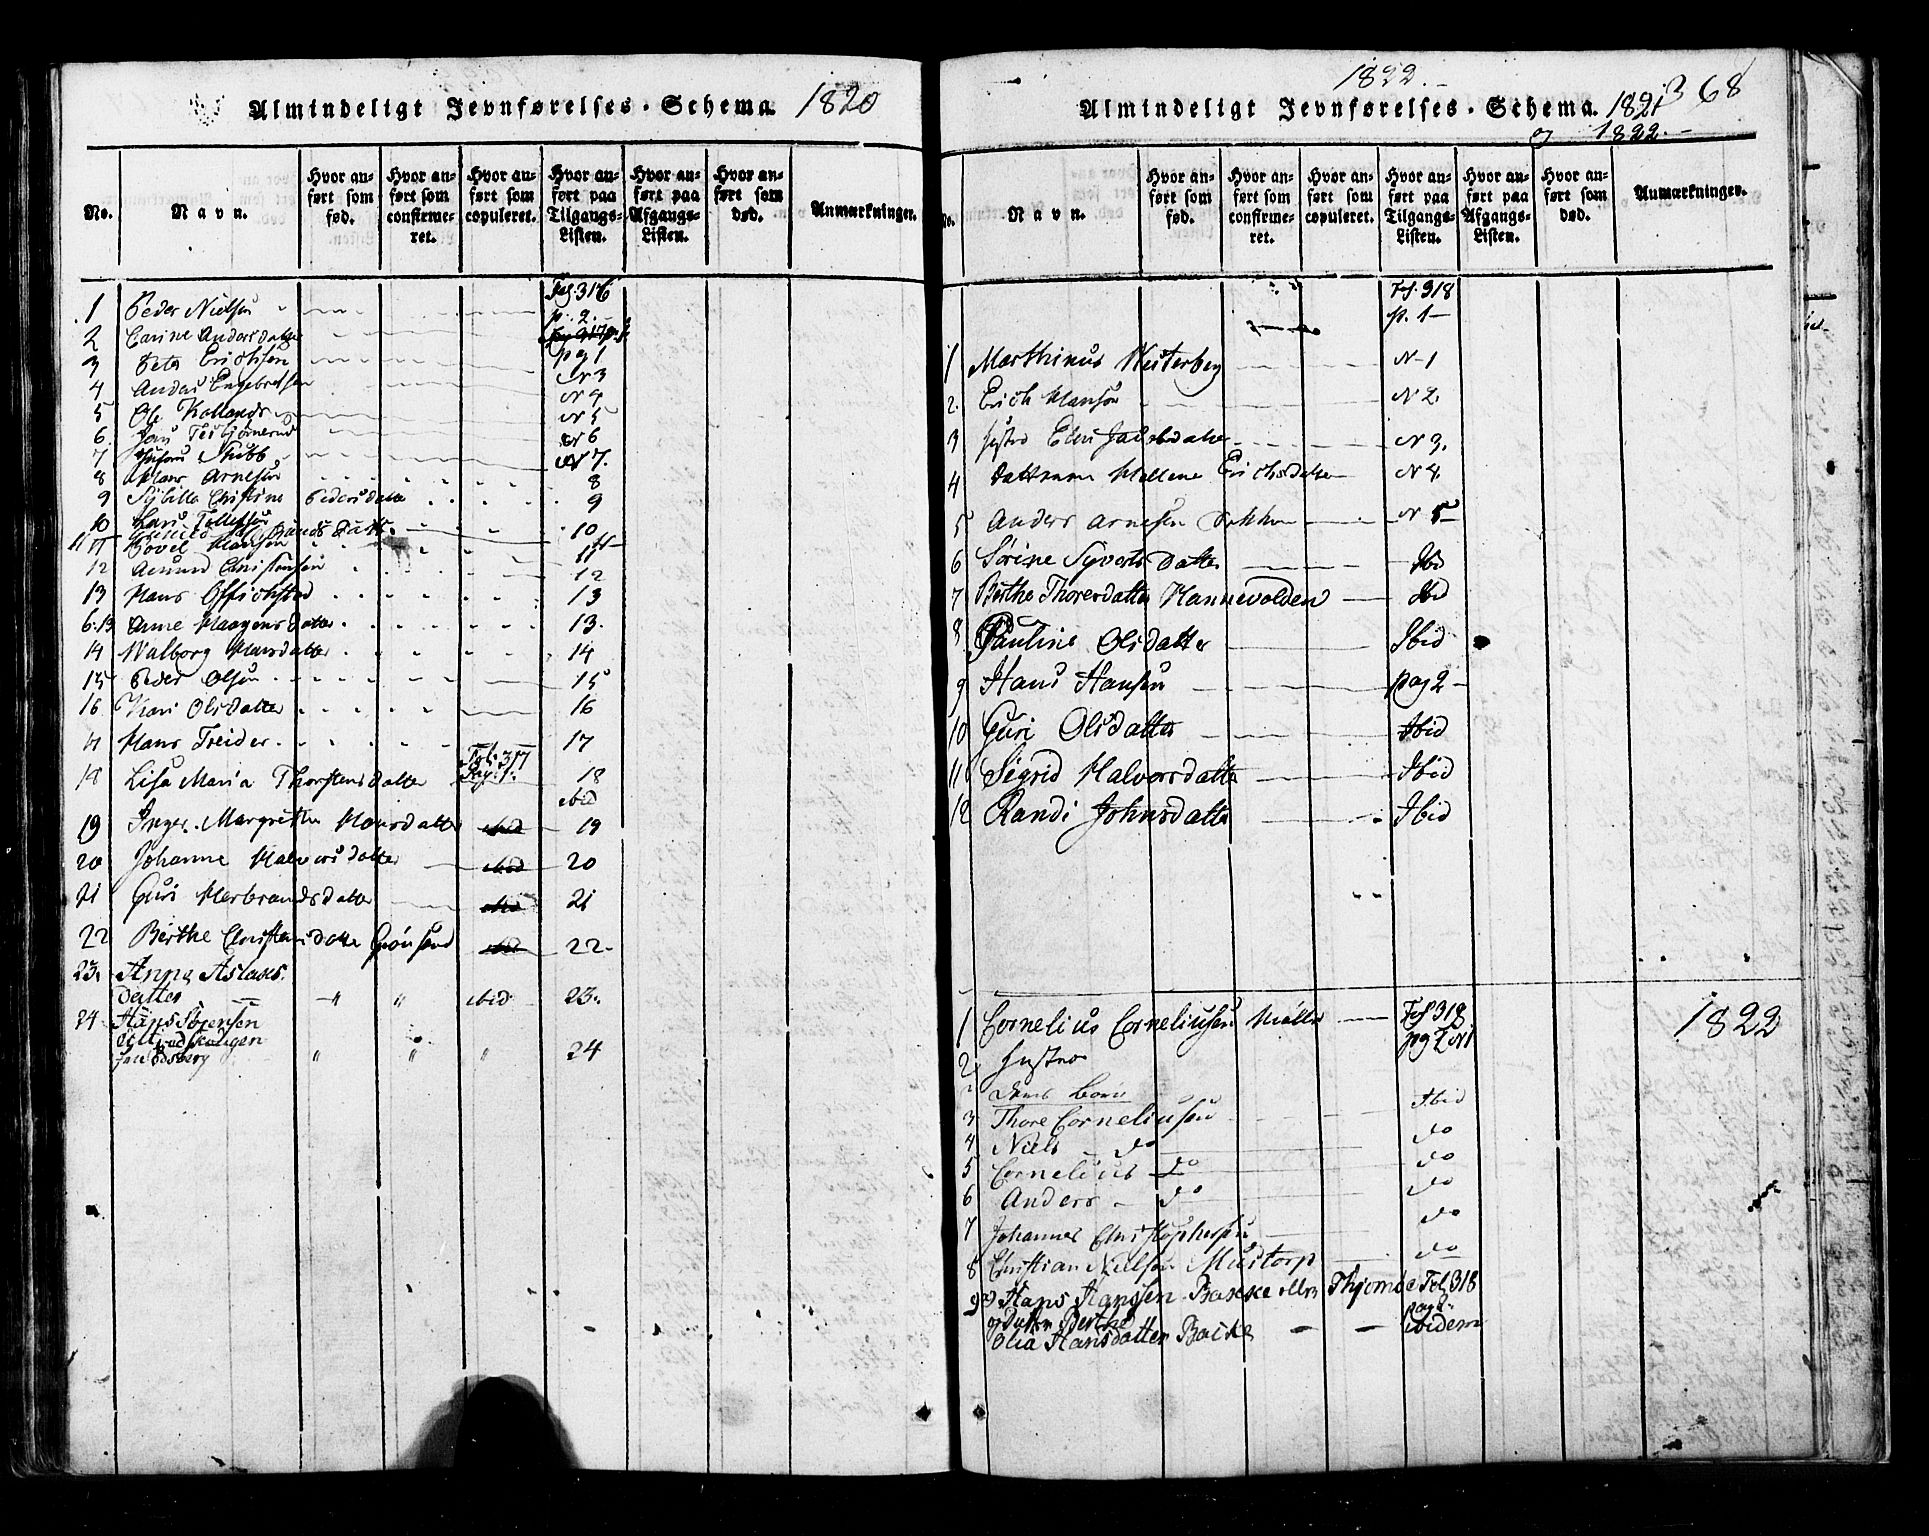 Almindeligt Jevnførelses-Schema. 1820
No.
Navn.
Hvor anført som fød.
Hvor anført som confirmeret.
Hvor anført som copuleret.
Hvor anført paa Tilgangs-Listen.
Hvor anført paa Afgangs-Listen.
Hvor anført som død.
Anmærkninger.
Fol. 316
1 Peder Nielsen p. 2.
2 Carine Andersdatter
3 Peter Erichsen pag 1
4 Anders Engebretsen N 3
5 Ole N 4
6. Jens N 5
7 N 6
8 Hans Arnesen N 7.
9 Sybille Christine Pedersdatter 8
10 Lars Tollefsen 9
11 10
11 Bovel Hansen 11
12 Amund Christensen 12
13 Hans 13
6.13 Anne Haagensdatter 13.
14 Walborg Hansdatter 14
15 Peder Olsen 15
16 Kari Olsdatter 16
17 Hans Treider 17
18 Lisa Maria Thorstensdatter Fol. 317 Pag. 1. 18
ibid
19 Inger Margrethe Hansdatter ibid 19
20 Johanne Halvorsdatter ibid 20
21 Guri Herbrandsdatter ibid 21
22 Berthe Christensdatter ibid 22
23. Anne Aslaks.
Datter ibid 23.
24. Hans Sørensen
24
1822.
Almindeligt Jevnførelses-Schema. 1821 368
og 1822.
No.
Navn.
Hvor anført som fød.
Hvor anført som confirmeret.
Hvor anført som copuleret.
Hvor anført paa Tilgangs-Listen.
Hvor anført paa Afgangs-Listen.
Hvor anført som død.
Anmærkninger.
Fol. 318
p. 1
1 Marthinus Westerberg N 1
2. Erich Hansen N 2.
3 Elen Jacobsdatter N 3.
4 Datteren Hellene Erichsdatter N 4.
5 Anders Arnesen N 5
6 Sørine Syvertsdatter Ibid
7 Berthe Thoresdatter Hannevolden Ibid
8 Pauline Olsdatter Ibid
9 Hans Hansen pag 2
10 Guri Olsdatter Ibid
11 Sigrid Halvorsdatter Ibid
12 Randi Johnsdatter Ibid
1 Cornelius Corneliusen Fol 318 1822
pag 2 N 1
2 Hustroe
Deres Børn
3 Thore Corneliusen Ibid
4 Niels do do
5 Cornelius do do
6 Anders do do
7 Johannes Christophersen do
8 Christian Nielsen do
9 Hans Hanssen Bakke Thjømøe Fol 318
pag 2
og Berthe
Olia Hansdatter Bakke ibidem